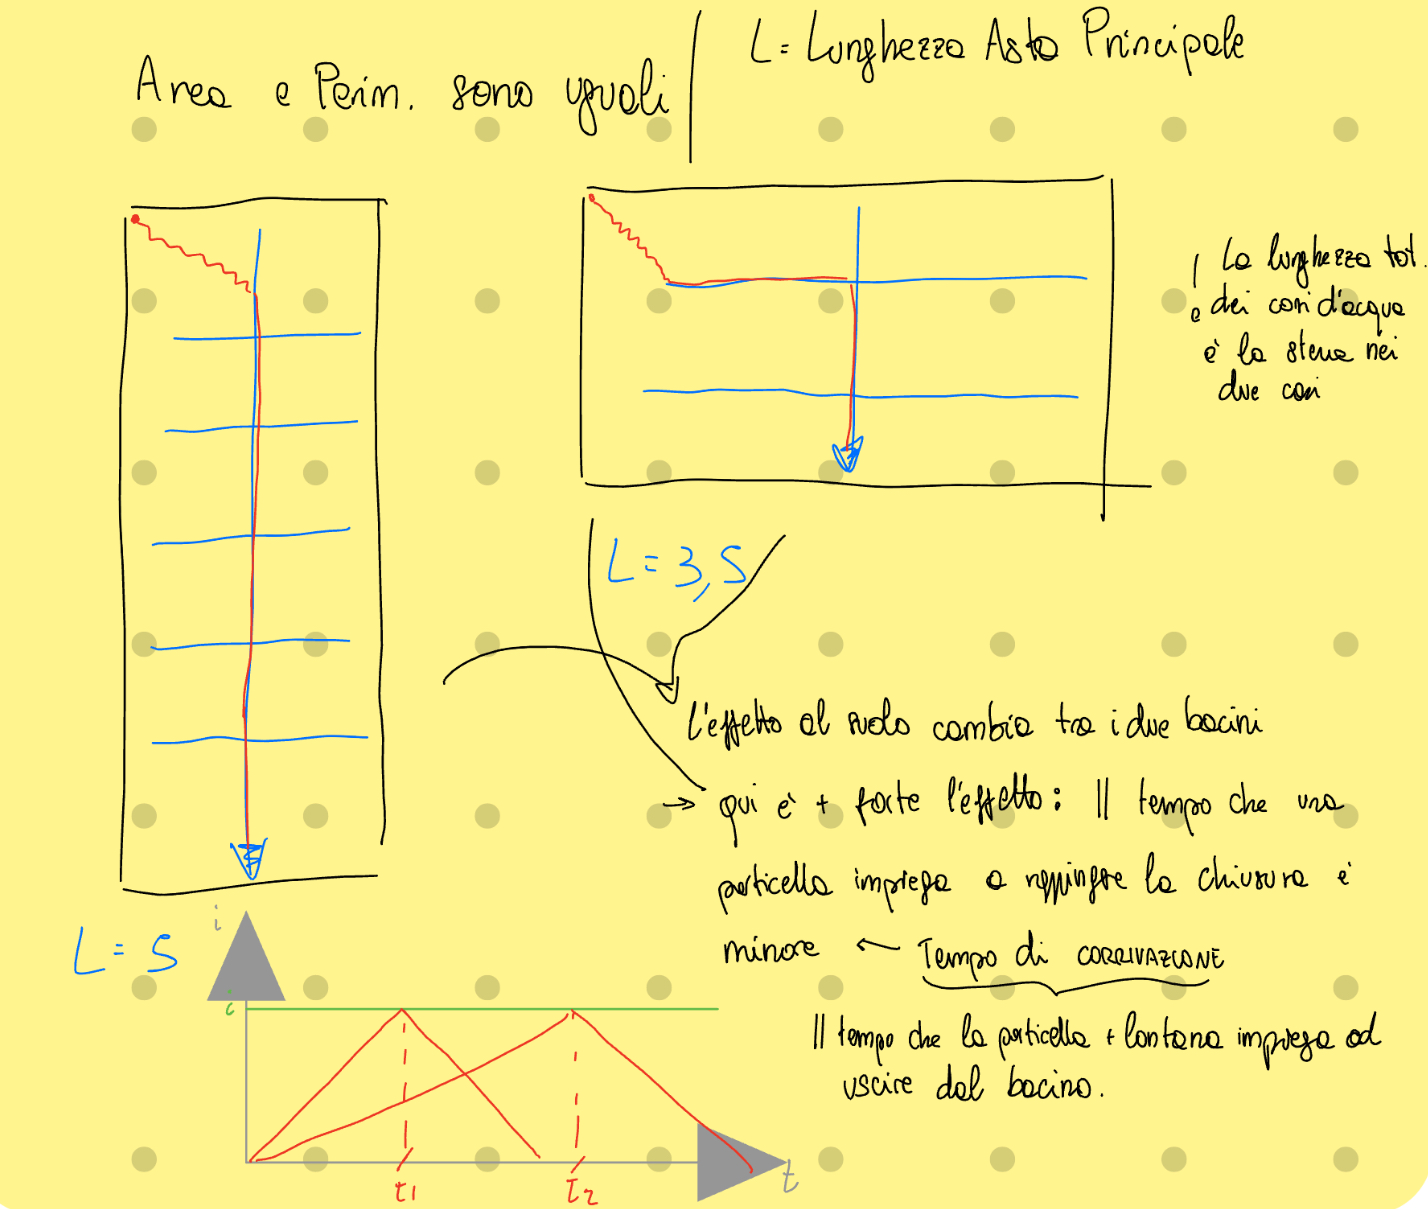 Area e Perim. sono uguali
L = Lunghezza Asta Principale
La lunghezza tot.
dei corsi d'acqua
è la stessa nei
due casi
L = 3,5
l'effetto al suolo cambia tra i due bacini
→ qui è + forte l'effetto: Il tempo che una
particella impiega a raggiungere la chiusura è
minore ← Tempo di CORRIVAZIONE
Il tempo che la particella + lontana impiega ad
uscire dal bacino.
L = 5
i
i
t1
t2
t